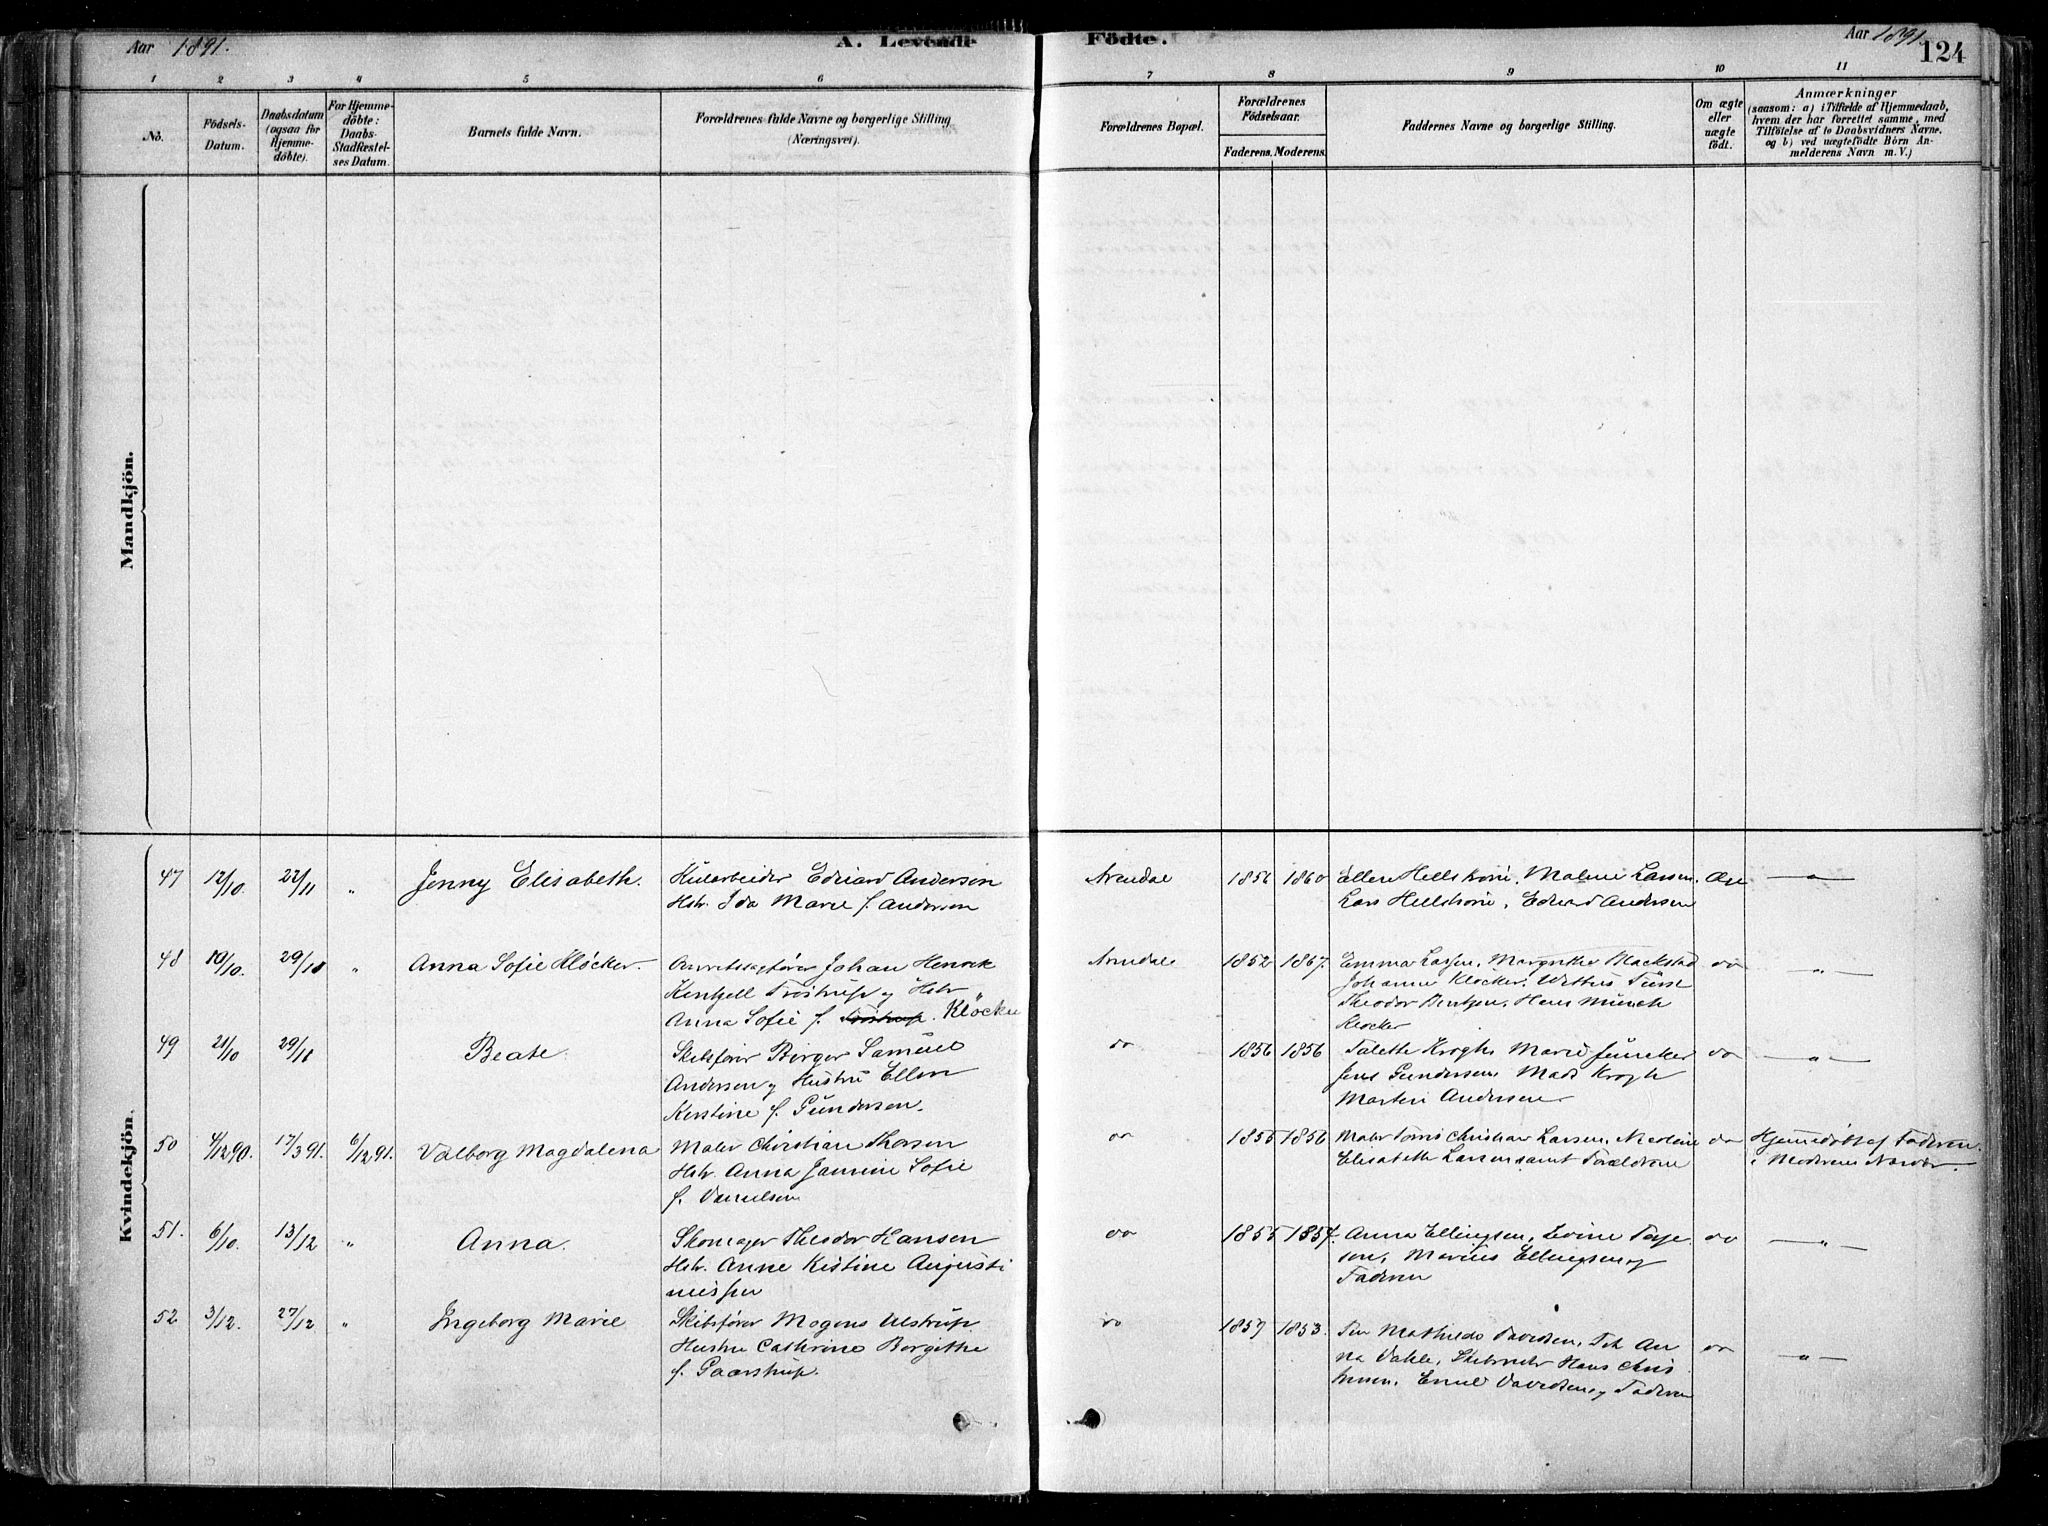 Aar 1891.
A. Levende Födte.
Aar 1891.
124
1 2 3 4 5 6 7 8 9 10 11
No.
Födsels-
Datum.
Daabsdatum
(ogsaa for
Hjemme-
döbte).
For Hjemme-
döbte:
Daabs-
Stadfæstel-
ses Datum.
Barnets fulde Navn.
Forældrenes fulde Navne og borgerlige Stilling
(Næringsvei).
Forældrenes Bopæl.
Forældrenes
Födselsaar.
Faderens. Moderens.
Faddernes Navne og borgerlige Stilling.
Om ægte
eller
uægte
födt.
Anmærkninger
(saasom: a) i Tilfælde af Hjemmedaab,
hvem der har forrettet samme, med
Tilföielse af to Daabsvidners Navne,
og b) ved uægtefödte Börn An-
melderens Navn m. V.)
Mandkjön.
Kvindekjön.
47 12/10. 22/11 " Jenny Elisabeth.
Edvard Andersen
Hstr. Ida Marie f. Andersen
Arendal 1856 1860
Malene Larsen.
Edvard Andersen
48 10/10. 29/11 " Anna Sofie Kløcker.
Johan Henrik
Kentzell Trøstrup og Hstr.
Anna Sofie f. Trøstrup. Klöcker
Arendal 1852 1867.
Emma Larsen, Margrethe Mackstad
Johanne Kløcker,
Theodor Bentzen, Hans Münch
Kløcker
49 21/10 29/11 Beate
Skibsfører Birger Samuel
Andersen og Hustru Ellen
Kirstine f. Gundersen.
do 1856 1856
Talette Krogh, Marie Juncker
Jens Gundersen Mads Krogh
Martin Andersen
do
50 4/12 90. 17/3 91. 6/12 91. Valborg Magdalena
Maler Christian Thorsen
Hstr. Anna Jamine Sofie
f. Danielsen
do 1855 1856
Maler Tønnes Christian Larsen, Nicoline
Elisabeth Larsen samt Forældrene
do
Hjemmedøbt af Faderen
i Moderens Nærvær.
51. 6/10. 13/12 " Anna.
Skomager Theodor Hansen
Hstr. Anne Kistine Augusti
nussen
do 1855 1854.
Anna Ellingsen, Levine Terje
sen, Marius Ellingsen og
Faderen
do
52 3/12. 27/12 " Ingeborg Marie
Skibsfører Mogens Ulstrup
Hustru Cathrine Birgithe
f. Gaarstrup.
do 1857 1853.
Mathilde Davidsen, Frk An
na Dahle, Hans Chris
tensen, Emil Davidsen og Faderen
do